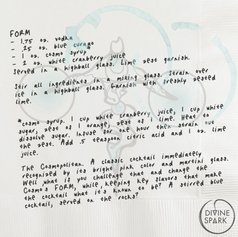 FORM
- 1.75 oz. vodka
- .25 oz. blue curaço
- 1 oz. cosmo syrup
- 2 oz. white cranberry juice
Served in a highball glass. Lime zest garnish.
Stir all ingredients in a mixing glass. Strain over
ice in a highball glass. Garnish with freshly zested
lime.
*cosmo syrup. 1 cup white cranberry juice, 1 cup white
sugar, zest of 1 orange, zest of 1 lime. Heat to
dissolve sugar. Infuse for one hour then strain out
the zest. Add .5 teaspoon citric acid and 1 oz. lime
juice.
The Cosmopolitan. A classic cocktail immediately
recognized in its bright pink color and martini glass.
Well what is you challenge that and change the
Cosmo's FORM, while keeping key flavors that make
the cocktail what it's known to be? A stirred blue
cocktail, served on the rocks?
DIVINE
SPARK